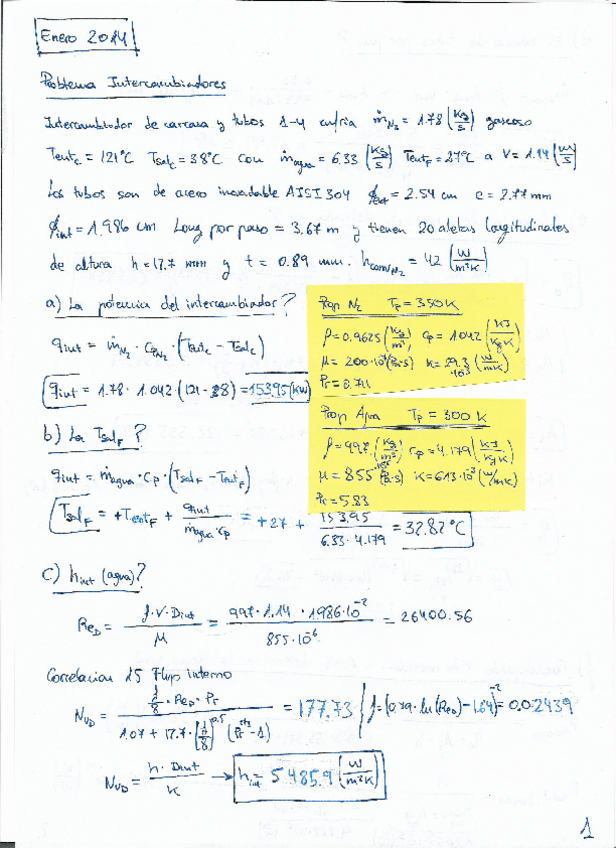 Enero 2014
Problema Intercambiadores
Intercambiador de carcasa y tubos 1-4 enfria ṁ_N₂ = 1.78 (Kg/s) gaseoso
Tent_c = 121°C Tsal_c = 38°C con ṁagua = 6.33 (Kg/s) Tent_F = 27°C a V = 1.14 (m/s)
Los tubos son de acero inoxidable AISI 304 ϕext = 2.54 cm e = 2.77 mm
ϕint = 1.986 cm Long por paso = 3.67 m y tienen 20 aletas longitudinales
de altura h = 17.7 mm y t = 0.89 mm. hconv N₂ = 42 (W/m²K)
a) La potencia del intercambiador?
qint = ṁ_N₂ · Cp_N₂ · (Tent_c − Tsal_c)
qint = 1.78 · 1.042 · (121 − 38) = 153.95 (KW)
Prop N₂ Tp = 350 K
ρ = 0.9625 (Kg/m³) cp = 1.042 (KJ/Kg K)
μ = 200·10⁻⁷ (Pa·s) K = 29.3·10⁻³ (W/mK)
Pr = 0.711
Prop Agua Tp = 300 K
ρ = 997 · (Kg/m³) cp = 4.179 (KJ/Kg K)
μ = 855·10⁻⁶ (Pa·s) K = 613·10⁻³ (W/mK)
Pr = 5.83
b) La Tsal_F?
qint = ṁagua · Cp · (Tsal_F − Tent_F)
Tsal_F = +Tent_F + qint / ṁagua·cp = +27 + 153.95 / 6.33·4.179 = 32.82 °C
c) hint (agua)?
Re_D = ρ·V·Dint / μ = 997·1.14·1.986·10⁻² / 855·10⁻⁶ = 26400.56
Correlacion 15 Flujo interno
Nu_D = f/8 · Re_D · Pr / 1.07 + 12.7·(f/8)^0.5 (Pr^2/3 − 1) = 177.73 / f = (0.79·ln(Re_D) − 1.64)⁻² = 0.02439
Nu_D = h·Dint / K → hint = 5485.9 (W/m²K)
1